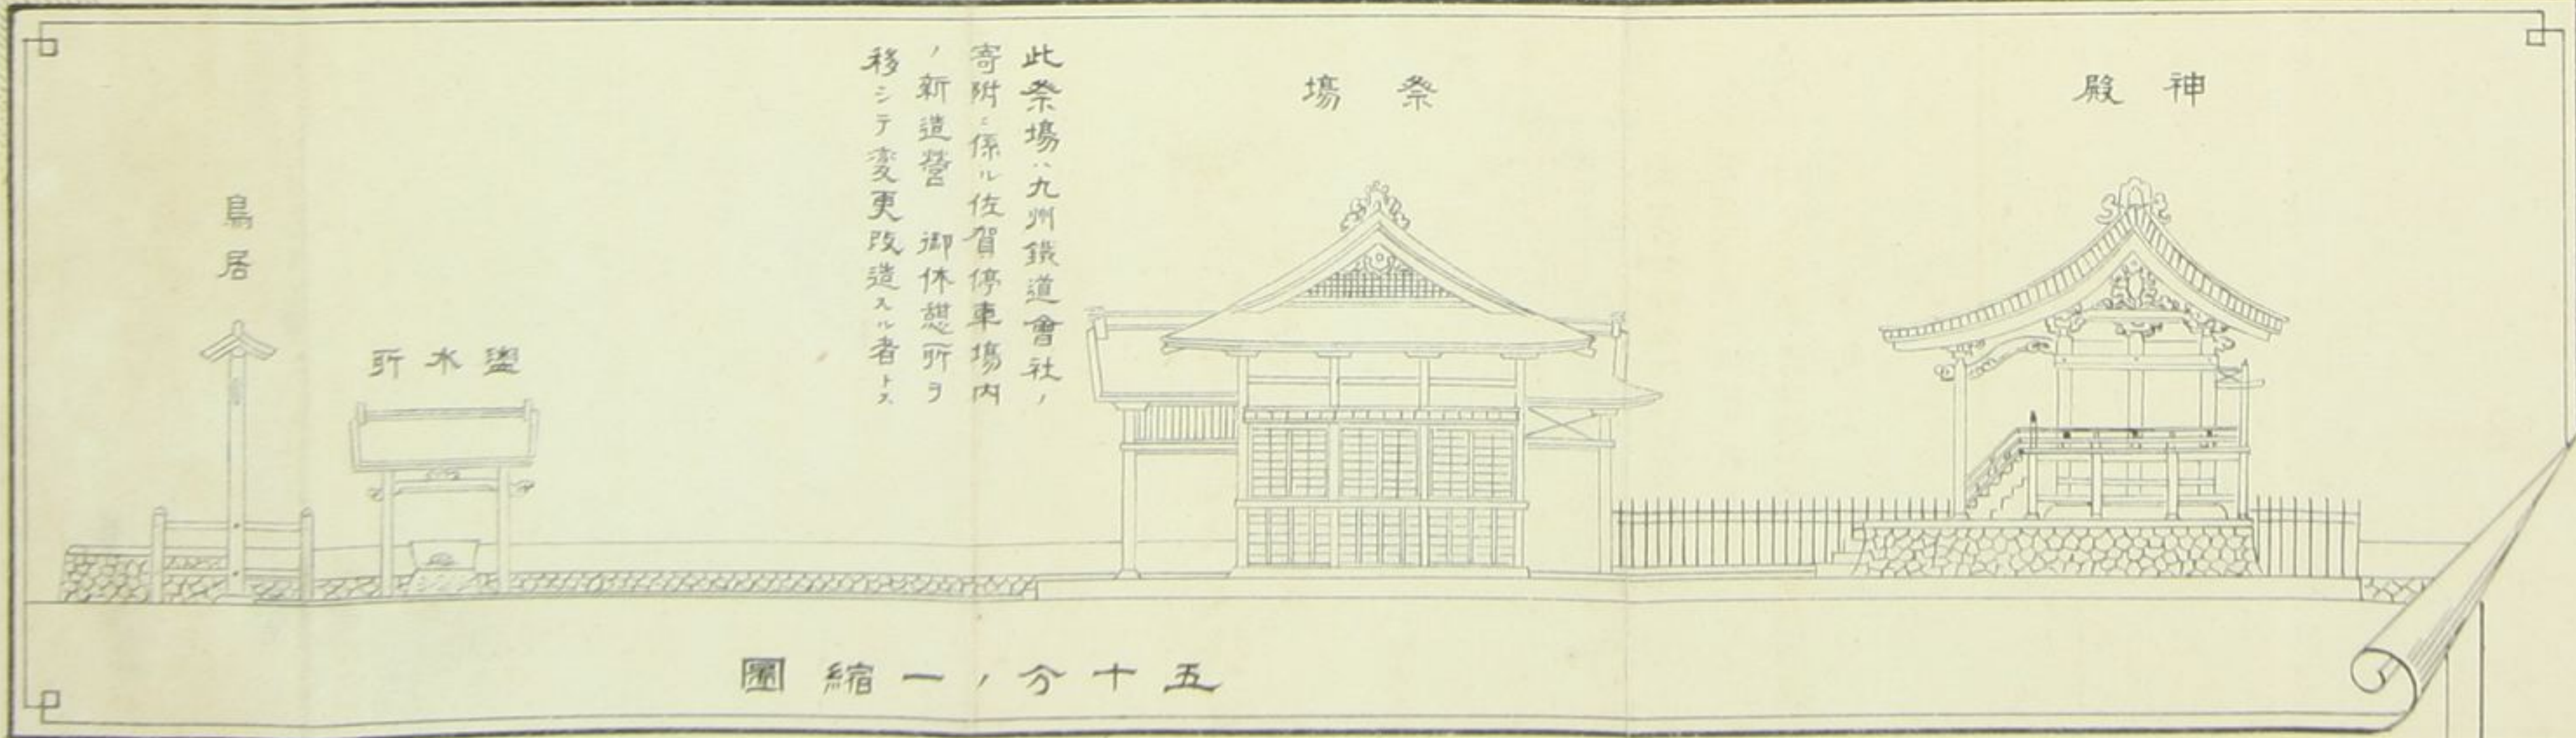 神殿
祭塲
此祭塲ハ九州鐵道會社ノ
寄附ニ係ル佐賀停車塲内
ノ新造營 御休憩所ヲ
移シテ変更改造スル者トス
盥水所
鳥居
五十分ノ一縮圖